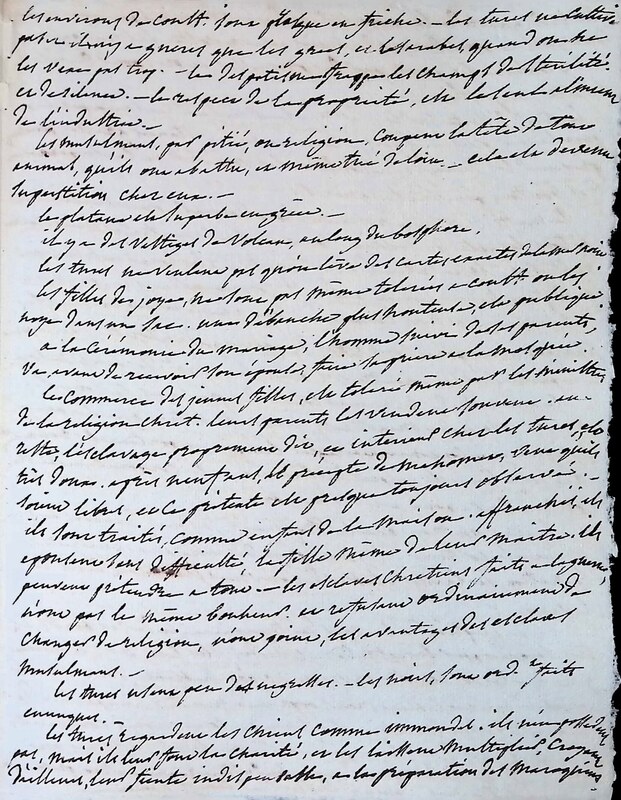 les environs de constt. sont presque en friche. - les turcs ne cultivent
pas. il n'y a guères que les grecs, et les arabes, quand on ne
les vexe pas trop. - le despotisme frappe les champs de sterilité
et de silence. - le respect de la propriété, est le seul aliment
de l'industrie. -
les musulmans, par pitié, ou religion, coupent la tête de tout
animal, qu'ils ont abattu, et même tiré de loin. - cela est devenu
superstition chez eux. -
le platane est superbe en grèce. -
il y a des vestiges de volcan, au long du bosphore.
les turcs ne veulent pas qu'on lève des cartes exactes de la mer noire
les filles de joye, ne sont pas même tolerées a constt. on les
noye dans un sac. une débauche plus honteuse, est publique.
a la cérémonie du mariage, l'homme suivi de ses parents,
va avant de recevoir son épouse, faire sa priere a la mosquée
le commerce des jeunes filles, est toleré même par les ministres
de la religion chret. leurs parents les vendent souvent. au
reste, l'esclavage proprement dit, et interieur chez les turcs, est
très doux. après neuf ans, le precepte de mahomet, veut qu'ils
soient libres, et ce précepte est presque toujours observé. -
ils sont traités, comme enfans de la maison. affranchis, ils
epousent sans difficulté, la fille même de leur maitre. ils
peuvent prétendre a tout. - les esclaves chretiens faits a la guerre,
n'ont pas le même bonheur, et refusant ordinairement de
changer de religion, n'ont point, les avantages des esclaves
musulmans. -
les turcs usent peu des negresses. - les noirs, sont ord.t faits
eunuques.
les turcs regardent les chiens comme immonde. ils n'en possedent
pas, mais ils leur font la charité, et les laissent multiplier, croyant
d'ailleurs, leur fiente indispensable, a la préparation des maroquins.